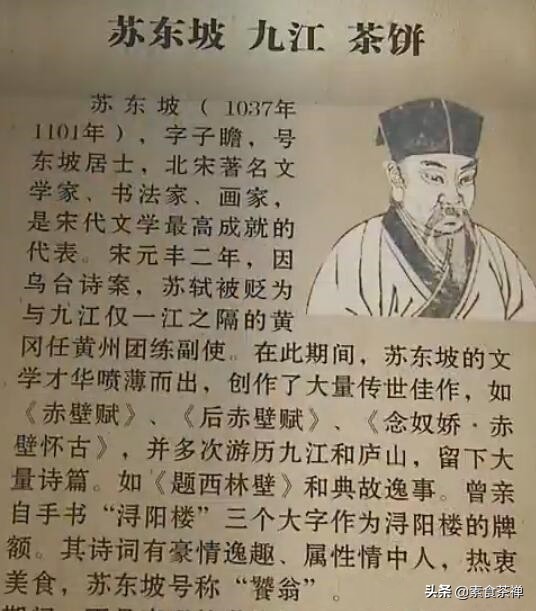 苏东坡 九江 茶饼
苏东坡（1037年
1101年），字子瞻，号
东坡居士，北宋著名文
学家、书法家、画家，
是宋代文学最高成就的
代表。宋元丰二年，因
乌台诗案，苏轼被贬为
与九江仅一江之隔的黄
冈任黄州团练副使。在此期间，苏东坡的文
学才华喷薄而出，创作了大量传世佳作，如
《赤壁赋》、《后赤壁赋》、《念奴娇·赤
壁怀古》，并多次游历九江和庐山，留下大
量诗篇。如《题西林壁》和典故逸事。曾亲
自手书“浔阳楼”三个大字作为浔阳楼的牌
额。其诗词有豪情逸趣、属性情中人，热衷
美食，苏东坡号称“饕翁”。
头条 @素食茶禅